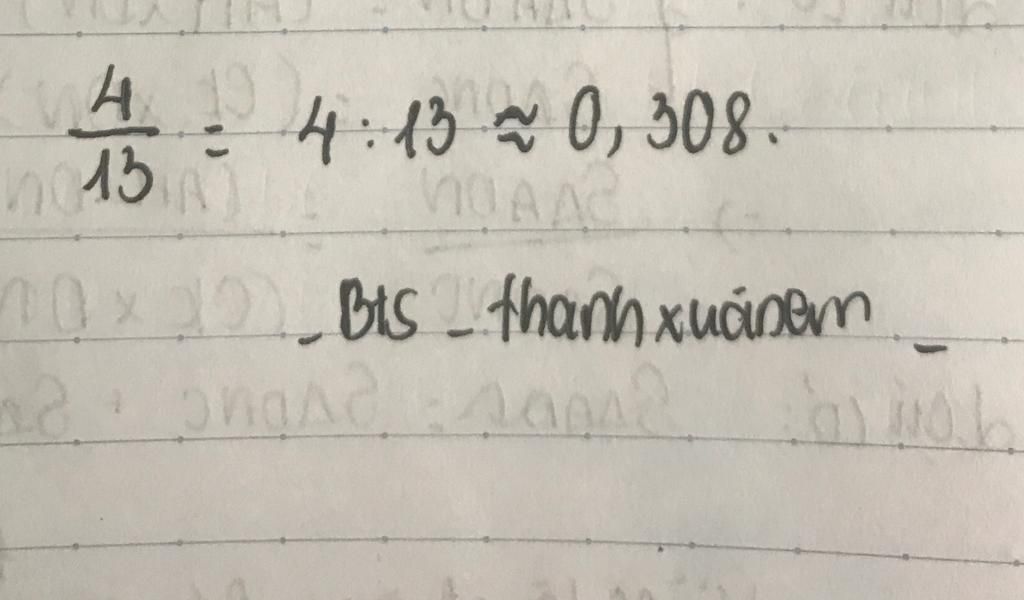 4/13 = 4 : 13 ≈ 0,308.
- Bts - thanhxuânem -